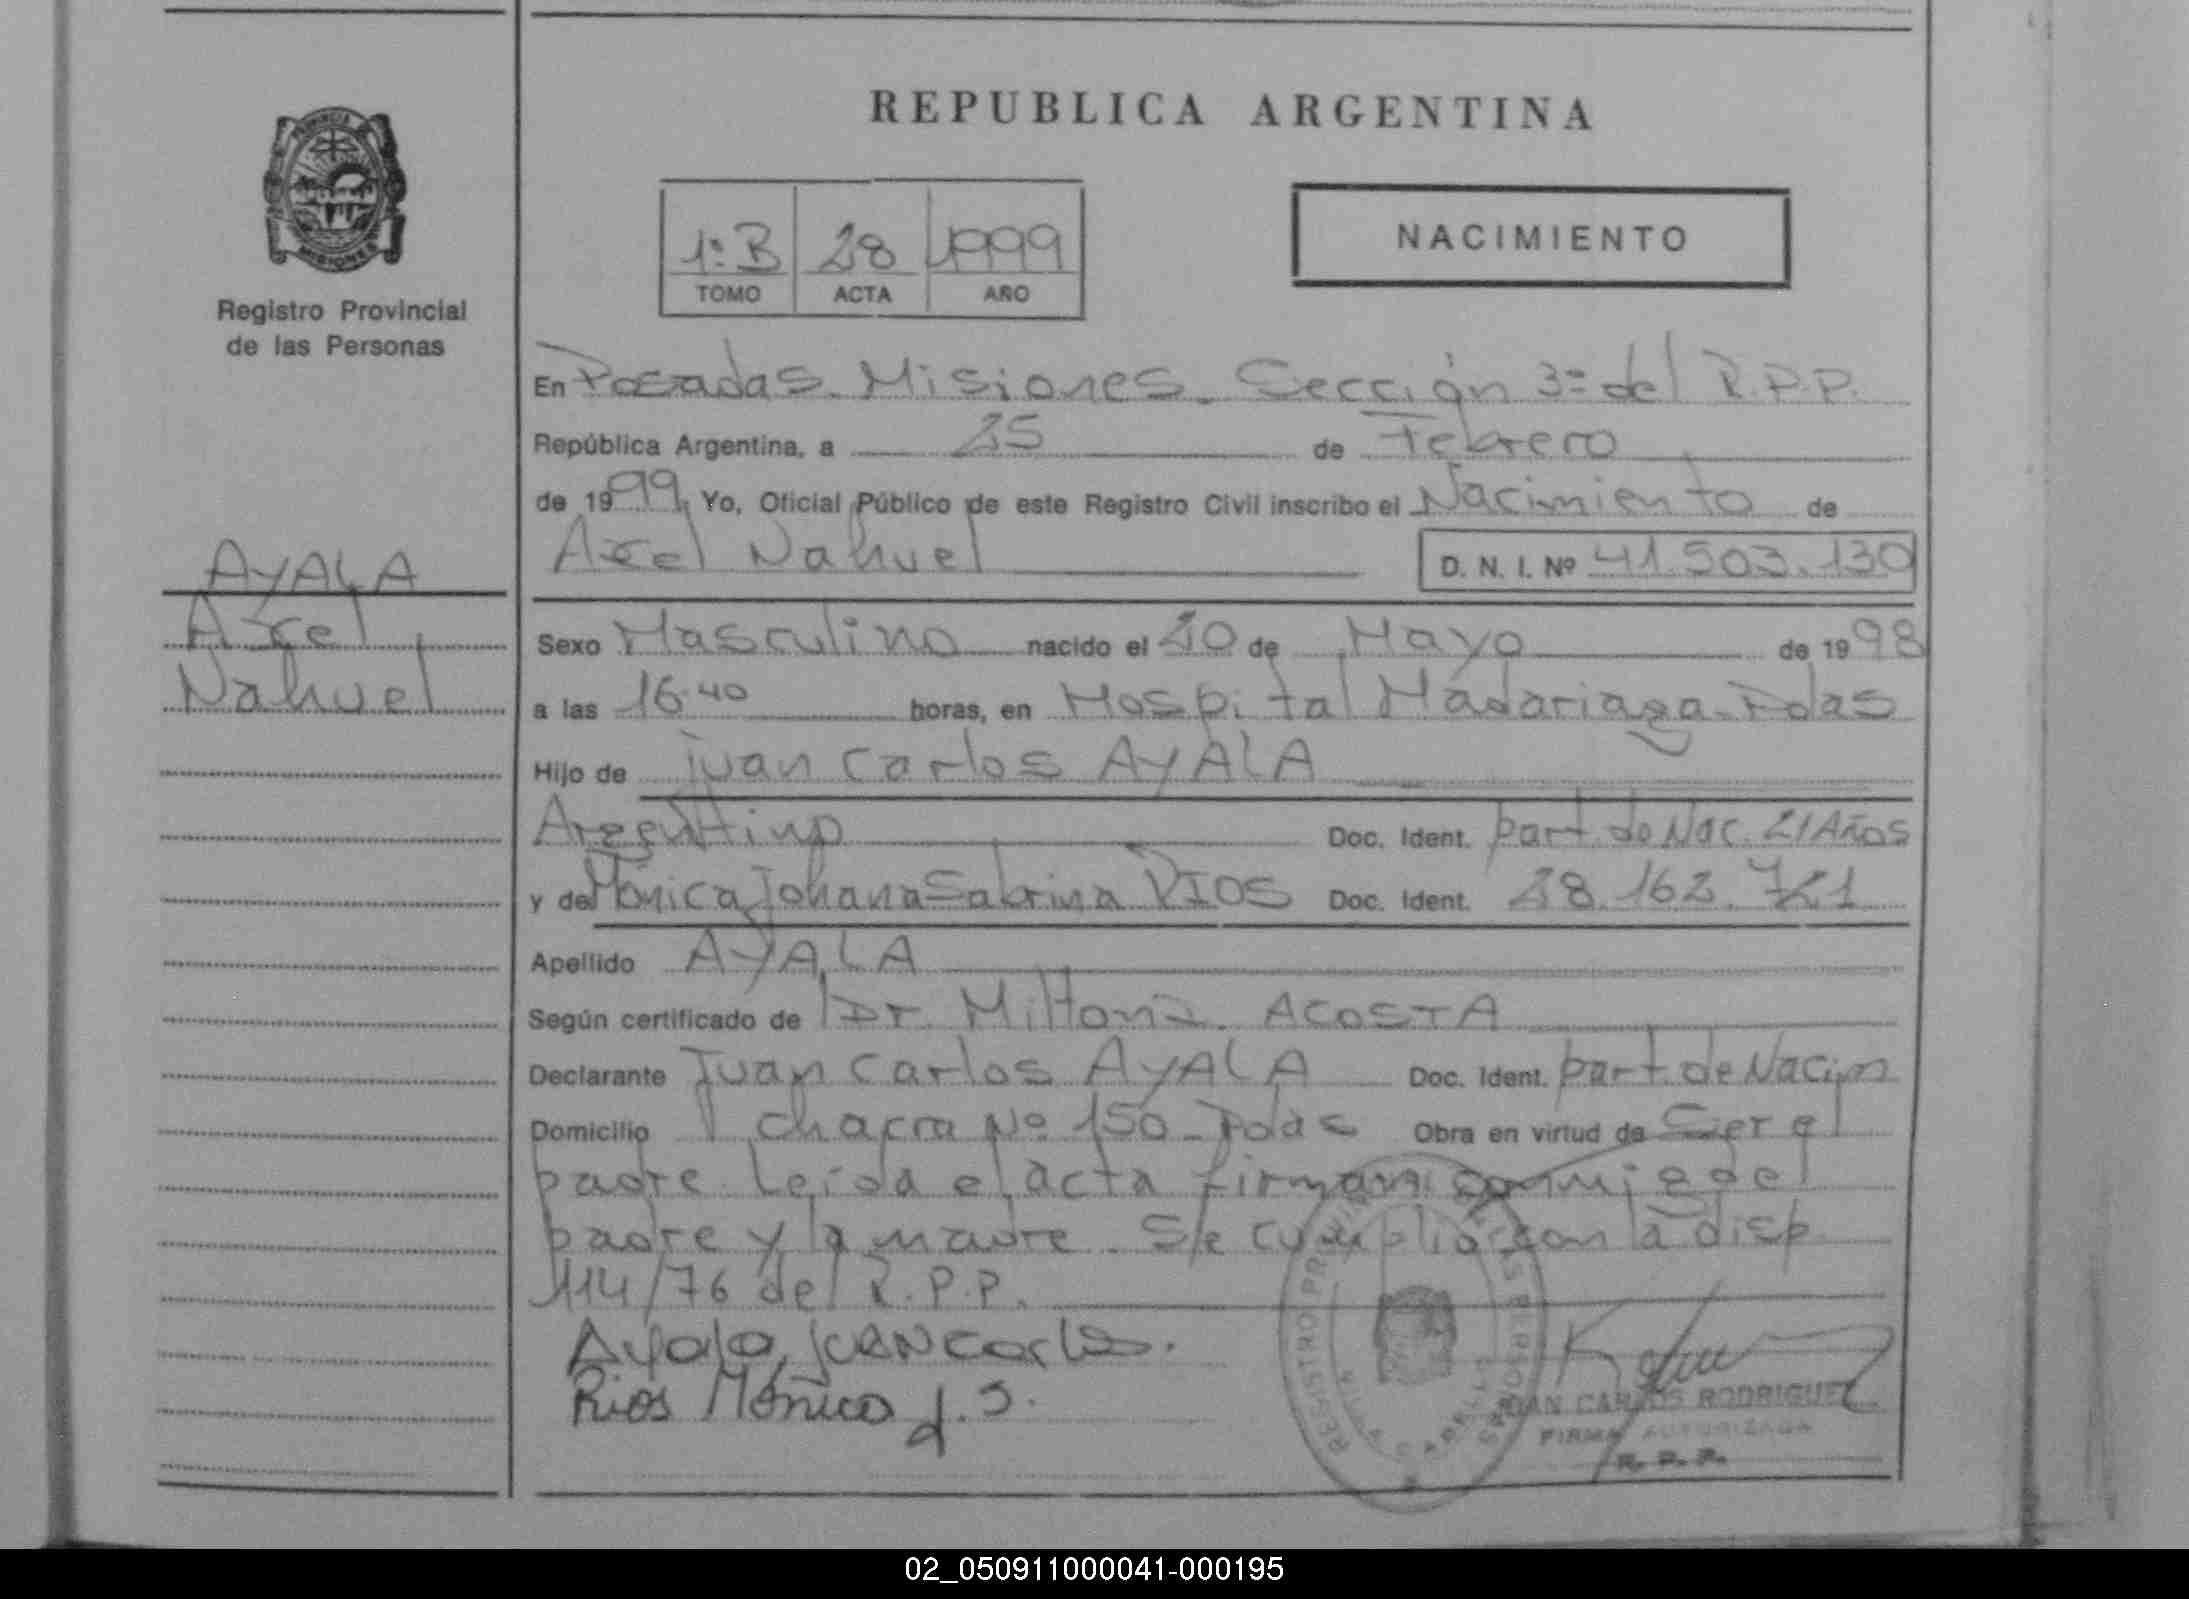 REPUBLICA ARGENTINA
PROVINCIA DE
MISIONES
Registro Provincial
de las Personas
1º B 28 1999
TOMO ACTA AÑO
NACIMIENTO
En Posadas. Misiones. Sección 3ª del R.P.P.
República Argentina, a 25 de Febrero
de 1999, Yo, Oficial Público de este Registro Civil inscribo el Nacimiento de
Axel Nahuel D. N. I. Nº 41.503.130
AYALA
Axel
Nahuel
Sexo Masculino nacido el 20 de Mayo de 1998
a las 16.40 horas, en Hospital Madariaga - Pdas
Hijo de Juan Carlos AYALA
Argentino Doc. Ident. part. de Nac. 21 Años
y de Mónica Johana Sabrina RIOS Doc. Ident. 28.162.721
Apellido AYALA
Según certificado de Dr. Milton ACOSTA
Declarante Juan Carlos AYALA Doc. Ident. part. de Nacim
Domicilio Chacra Nº 150 - Pdas Obra en virtud de Ser el
padre. Leída el acta firman conmigo el
padre y la madre. Se cumplió con la disp.
114/76 del R.P.P.
Ayala, Juan Carlos.
Rios Mónica J. S.
REGISTRO
JUAN CARLOS RODRIGUEZ
FIRMA AUTORIZADA
R. P. P.
02_050911000041-000195